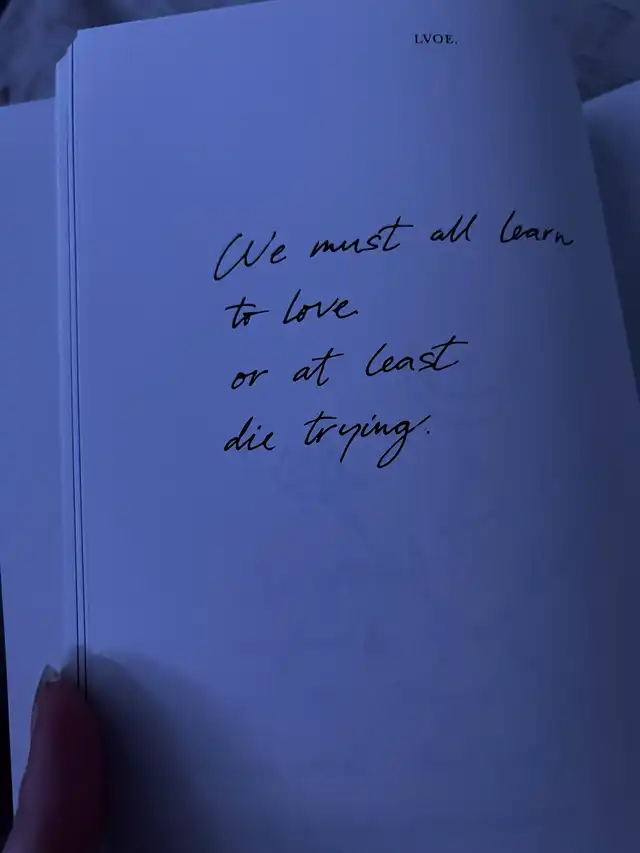 LVOE.
We must all learn
to love
or at least
die trying.